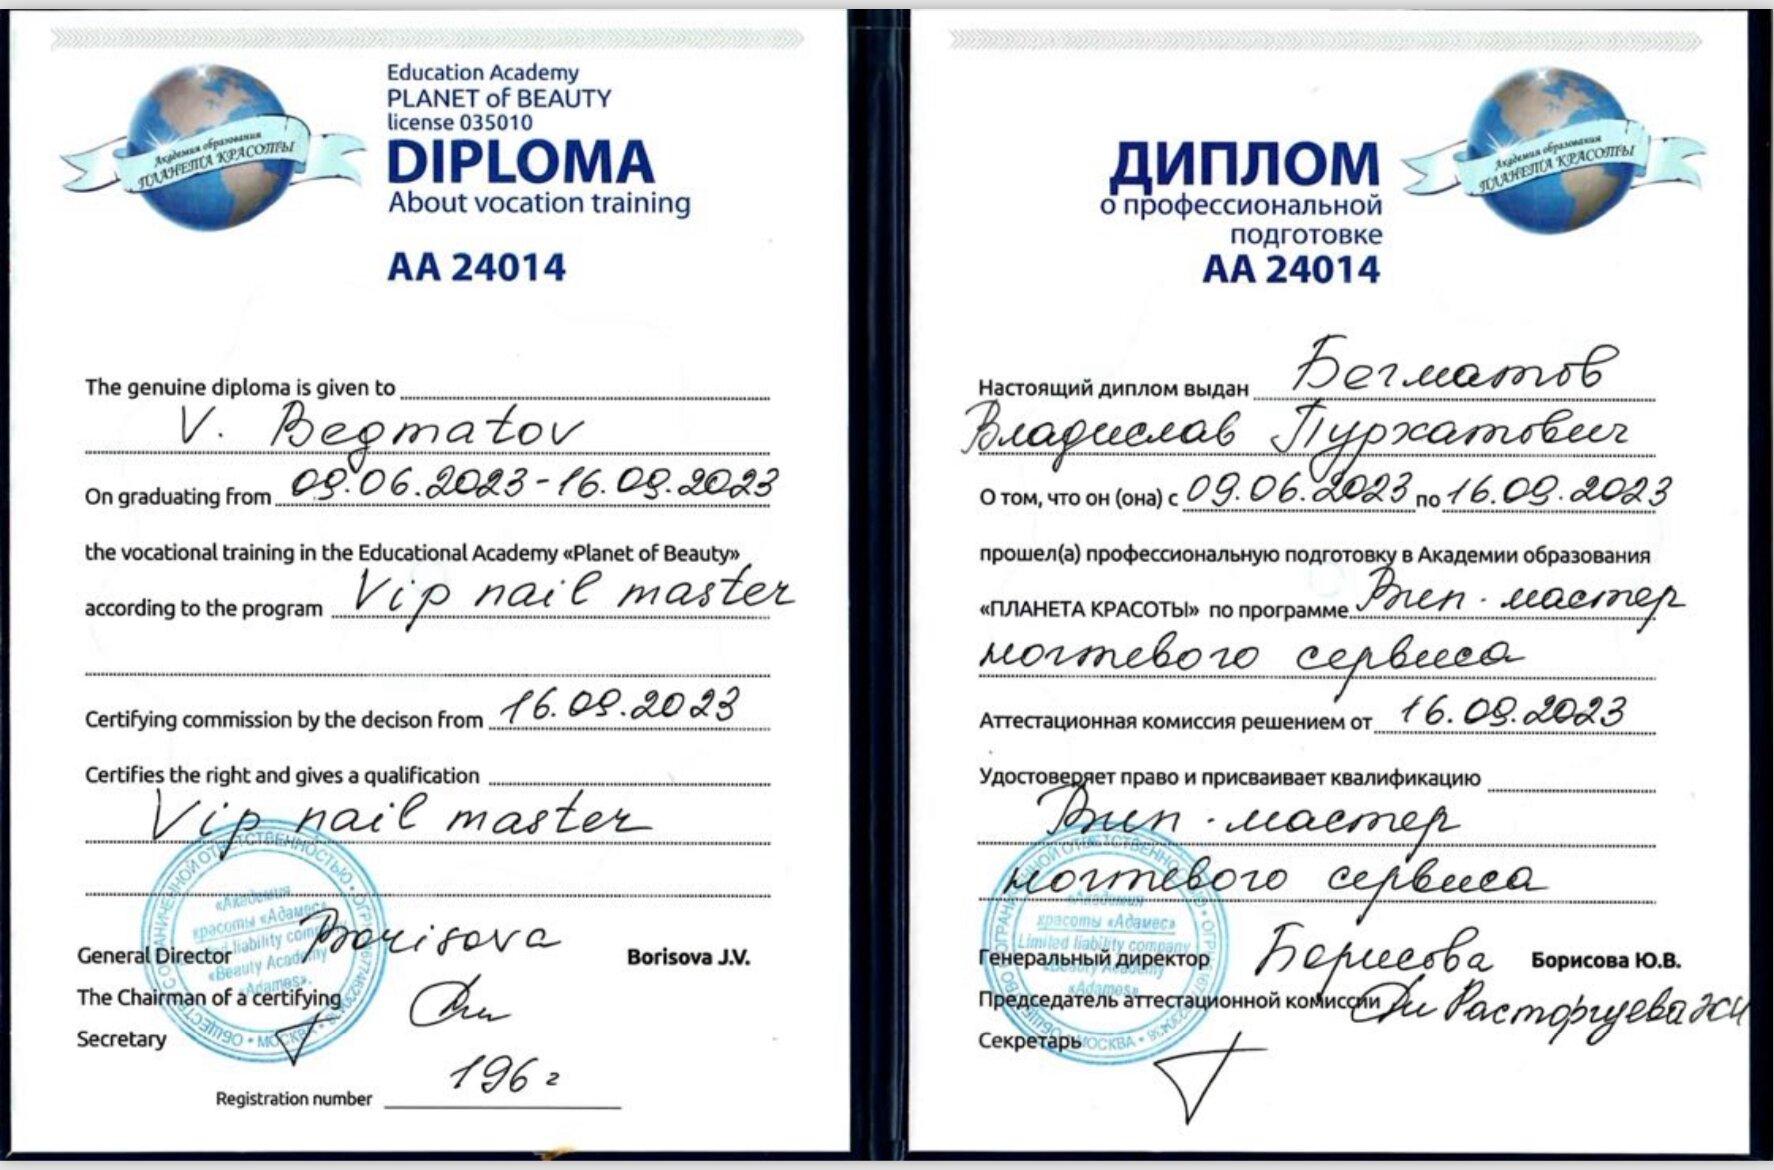 Академия образования
ПЛАНЕТА КРАСОТЫ
Education Academy
PLANET of BEAUTY
license 035010
DIPLOMA
About vocation training
AA 24014
The genuine diploma is given to
V. Begmatov
On graduating from 09.06.2023-16.09.2023
the vocational training in the Educational Academy «Planet of Beauty»
according to the program Vip nail master
Certifying commission by the decison from 16.09.2023
Certifies the right and gives a qualification
Vip nail master
«Академия
красоты «Адамес»
Limited liability company
«Beauty Academy
«Adames».
General Director Borisova Borisova J.V.
The Chairman of a certifying
Secretary
МОСКВА
Registration number 196 г
ДИПЛОМ
о профессиональной
подготовке
АА 24014
Академия образования
ПЛАНЕТА КРАСОТЫ
Настоящий диплом выдан Бегматов
Владислав Пурхатович
О том, что он (она) с 09.06.2023 по 16.09.2023
прошел(а) профессиональную подготовку в Академии образования
«ПЛАНЕТА КРАСОТЫ» по программе Вип-мастер
ногтевого сервиса
Аттестационная комиссия решением от 16.09.2023
Удостоверяет право и присваивает квалификацию
Вип-мастер
ногтевого сервиса
«Академия
красоты «Адамес»
Limited liability company
«Beauty Academy
«Adames»
Генеральный директор Борисова Борисова Ю.В.
Председатель аттестационной комиссии Расторгуева
Секретарь
МОСКВА